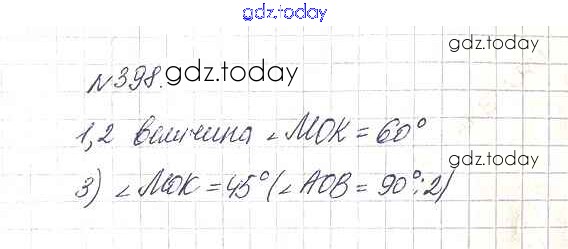 gdz.today
gdz.today
№398. gdz.today
1,2 величина ∠MOK = 60°
gdz.today
3) ∠MOK = 45° (∠AOB = 90°:2)